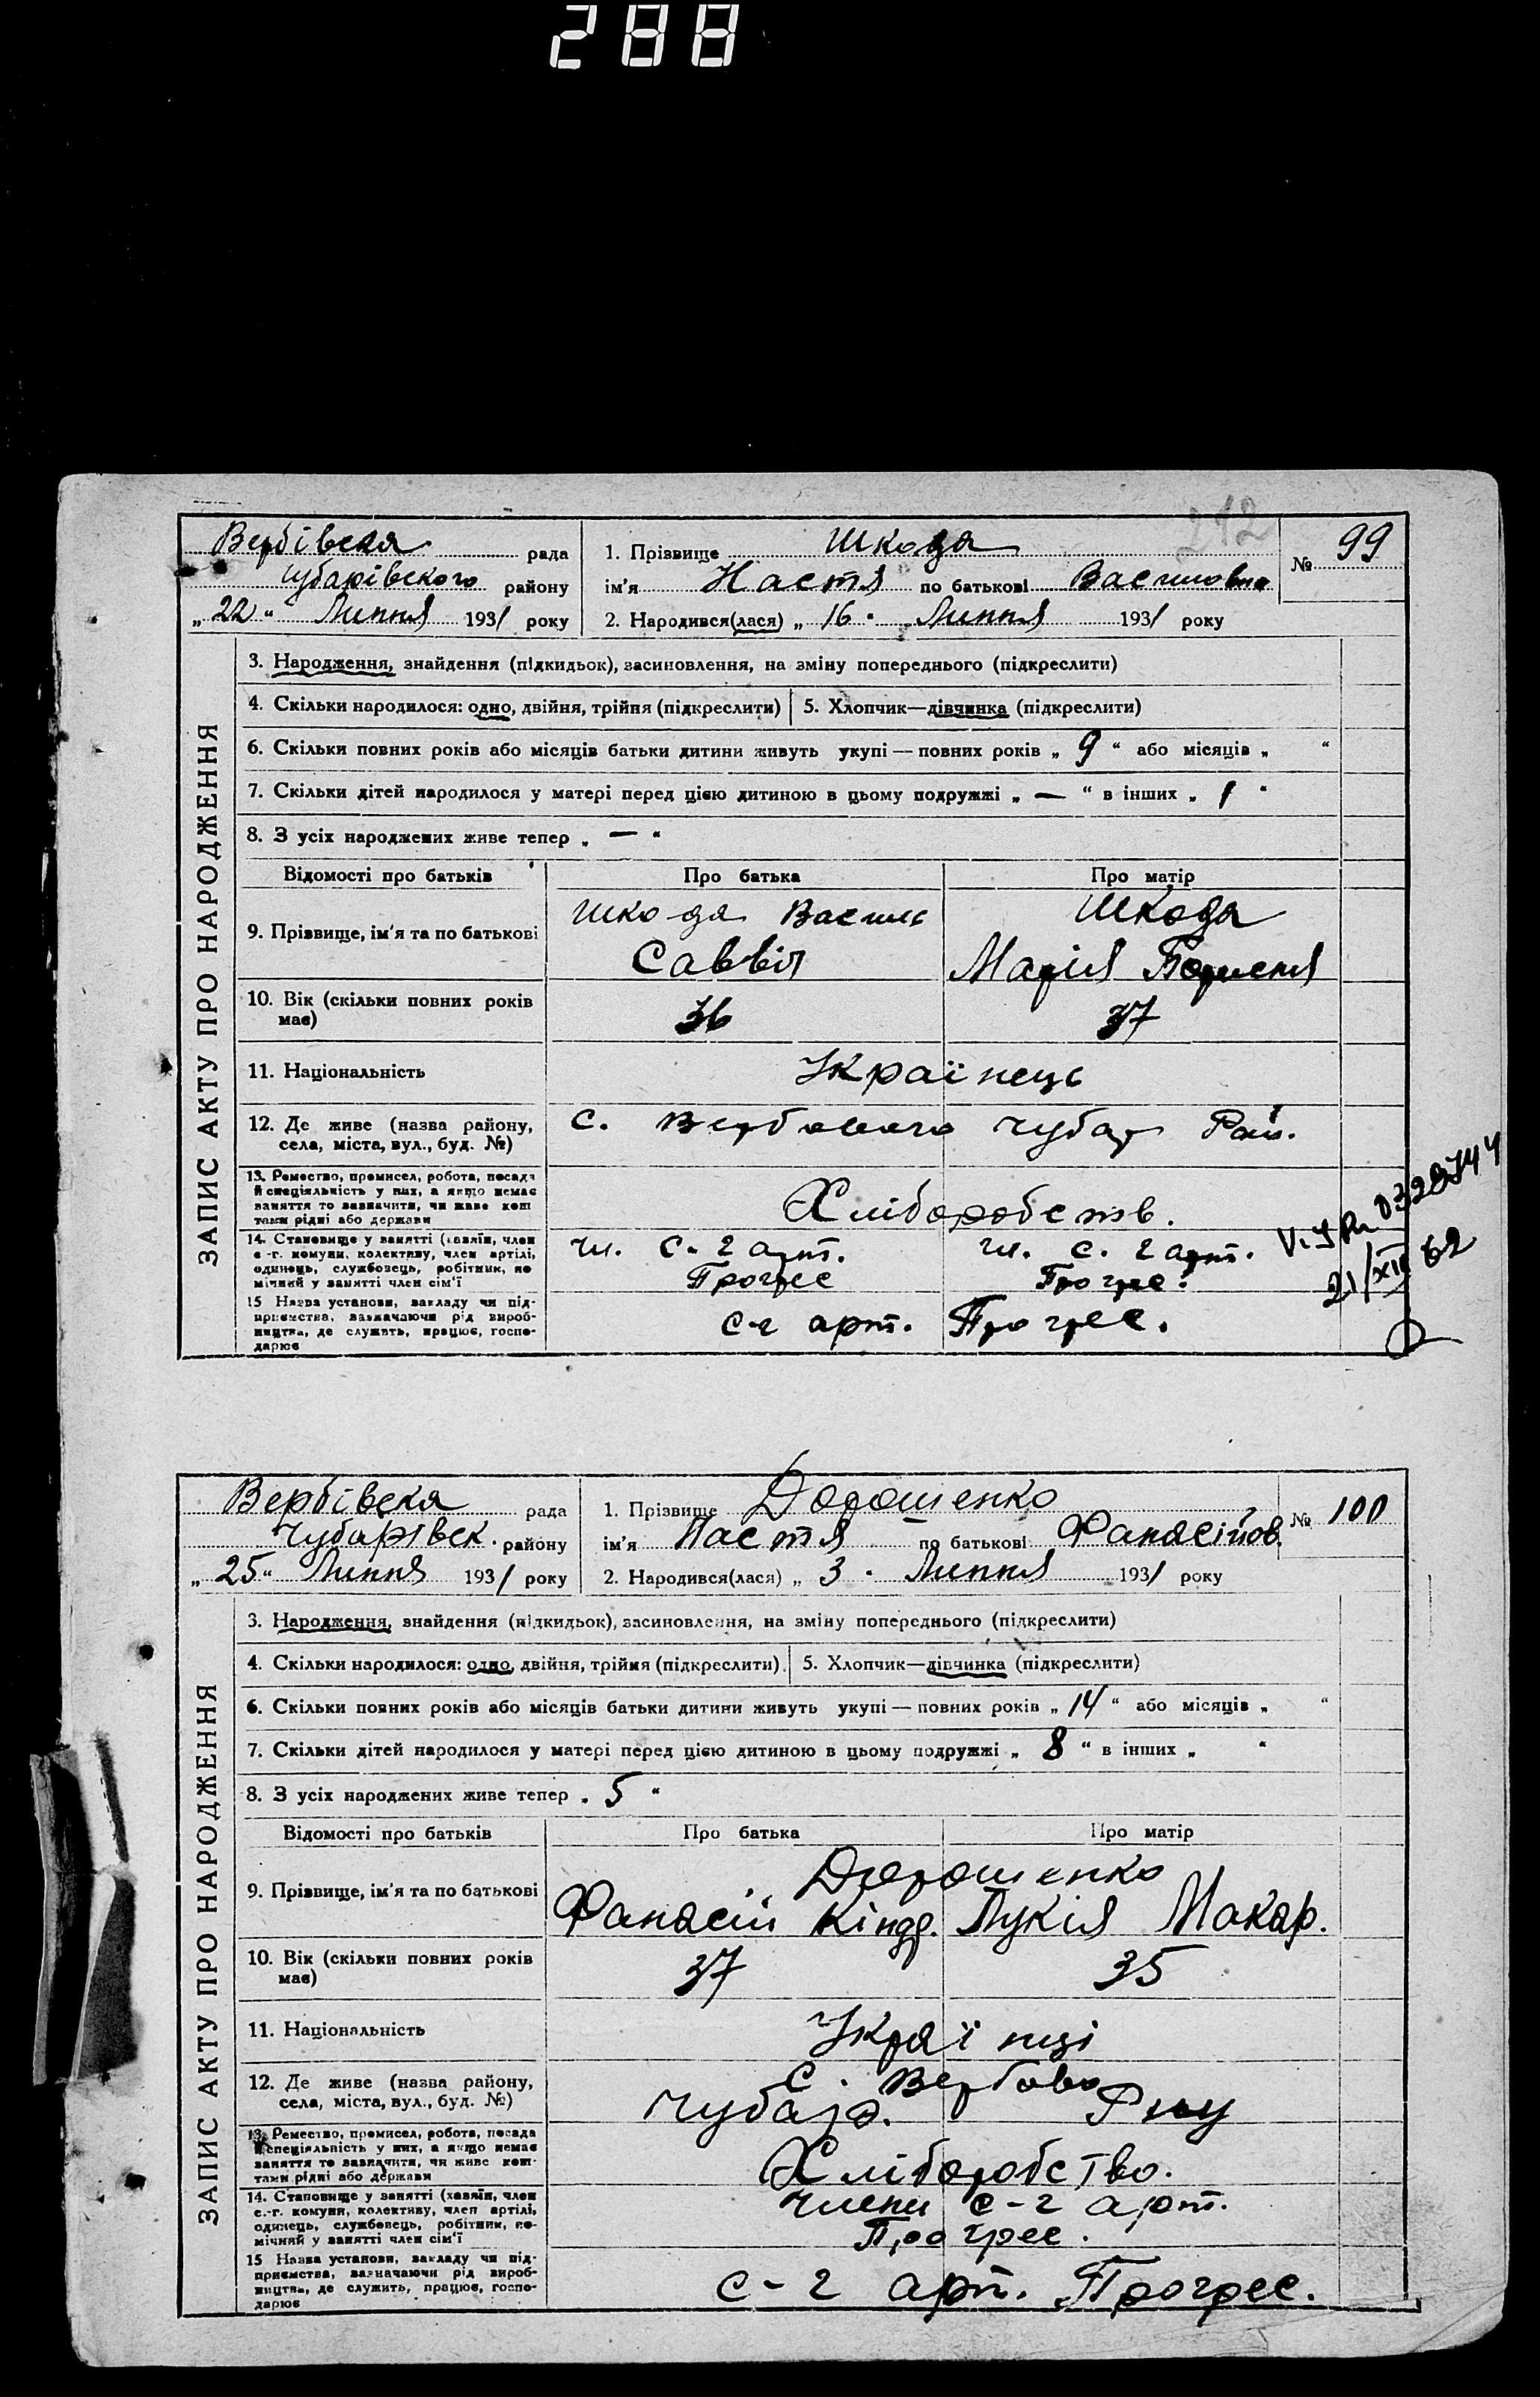 288
212
Вербівска рада
Чубарівского району
„ 22 “ Липня 1931 року
1. Прізвище Шкода
ім'я Настя по батькові Василовна
2. Народився(лася) „ 16 “ Липня 1931 року
№ 99
ЗАПИС АКТУ ПРО НАРОДЖЕННЯ
3. Народження, знайдення (підкидьок), засиновлення, на зміну попереднього (підкреслити)
4. Скільки народилося: одно, двійня, трійня (підкреслити) 5. Хлопчик—дівчинка (підкреслити)
6. Скільки повних років або місяців батьки дитини живуть укупі — повних років „ 9 “ або місяців „ “
7. Скільки дітей народилося у матері перед цією дитиною в цьому подружжі „ — “ в інших „ 1 “
8. З усіх народжених живе тепер „ — “
Відомості про батьків Про батька Про матір
9. Прізвище, ім'я та по батькові
Шкода Василь
Саввія
Шкода
Марія
10. Вік (скільки повних років
має)
36 37
11. Національність Українець
12. Де живе (назва району,
села, міста, вул., буд. №)
с. Вербового Чубар Рай.
13. Ремество, промисел, робота, посада
й спеціяльність у них, а якщо немає
заняття то зазначити, чи живе кош
тами рідні або держави
Хлібороботв.
14. Становище у занятті (хазяїн, член
с.-г. комуни, колективу, член артілі,
одинець, службовець, робітник, по
мічний у занятті член сім'ї
Чл. с.-г арт. Чл. с. г арт.
Прогрес Прогрес.
15 Назва установи, закладу чи під-
приємства, зазначаючи рід вироб-
ництва, де служить, працює, госпо-
дарює
с-г арт. Прогрес.
21/XII 62
Вербівска рада
Чубарівск. району
„ 25 “ Липня 1931 року
1. Прізвище Дорошенко
ім'я Настя по батькові Фанасійов.
2. Народився(лася) „ 3 “ Липня 1931 року
№ 100
ЗАПИС АКТУ ПРО НАРОДЖЕННЯ
3. Народження, знайдення (підкидьок), засиновлення, на зміну попереднього (підкреслити)
4. Скільки народилося: одно, двійня, трійня (підкреслити) 5. Хлопчик—дівчинка (підкреслити)
6. Скільки повних років або місяців батьки дитини живуть укупі — повних років „ 14 “ або місяців „ “
7. Скільки дітей народилося у матері перед цією дитиною в цьому подружжі „ 8 “ в інших „ “
8. З усіх народжених живе тепер „ 5 “
Відомості про батьків Про батька Про матір
9. Прізвище, ім'я та по батькові
Дорошенко
Фанасій Кіндр. Лукія Макар.
10. Вік (скільки повних років
має)
37 35
11. Національність Українці
12. Де живе (назва району,
села, міста, вул., буд. №)
с. Вербово
Чубар. Р-ну
13. Ремество, промисел, робота, посада
й спеціяльність у них, а якщо немає
заняття то зазначити, чи живе кош-
тами рідні або держави
Хліборобство.
14. Становище у занятті (хазяїн, член
с.-г. комуни, колективу, член артілі,
одинець, службовець, робітник, по-
мічний у занятті член сім'ї
Члени с-г арт.
Прогрес.
15 Назва установи, закладу чи під-
приємства, зазначаючи рід вироб-
ництва, де служить, працює, госпо-
дарює
с-г арт. Прогрес.